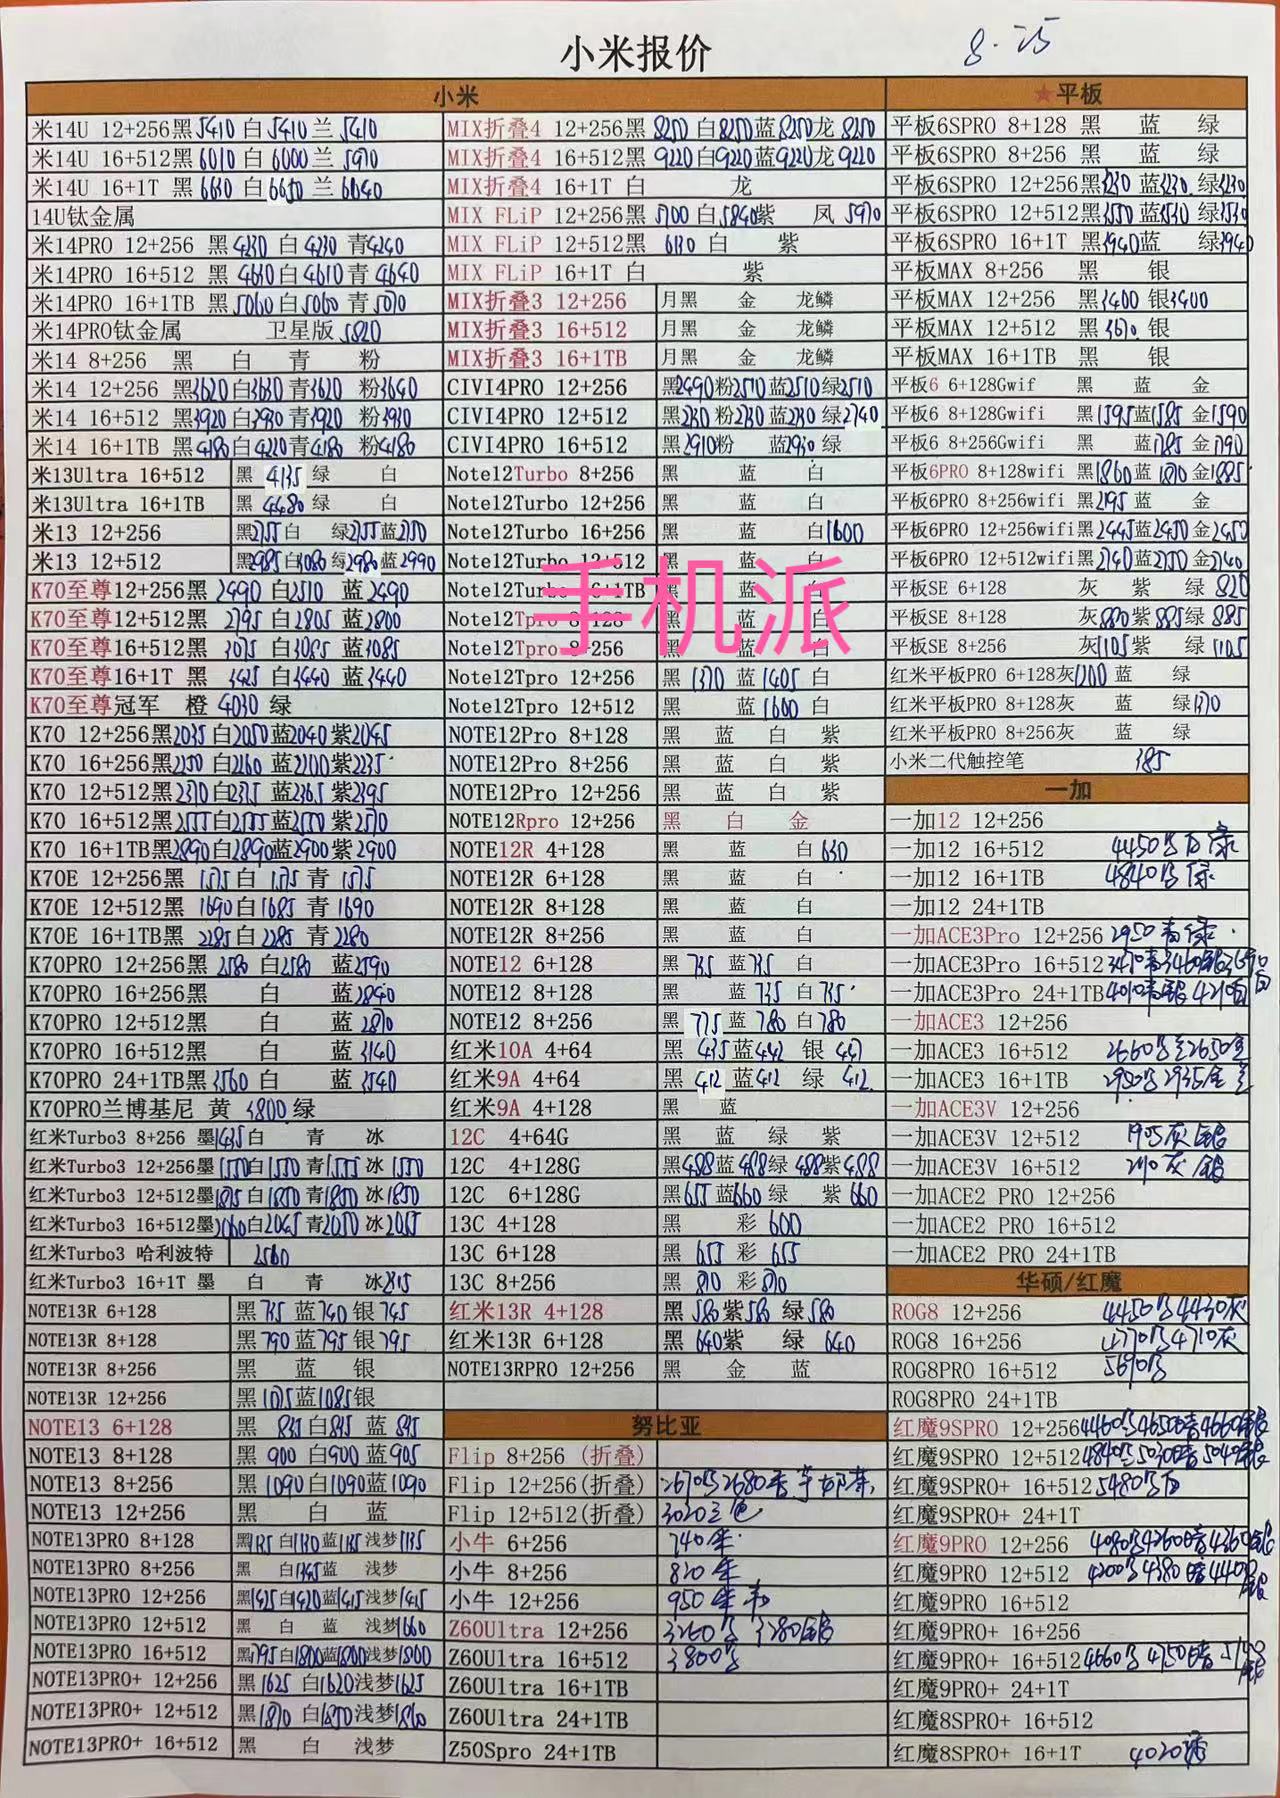 小米报价
8.25
小米
米14U 12+256黑5410 白5410 兰5410
米14U 16+512黑6010 白6000 兰5970
米14U 16+1T 黑6630 白6650 兰6640
14U钛金属
米14PRO 12+256 黑4230 白4230 青4240
米14PRO 16+512 黑4630 白4610 青4640
米14PRO 16+1TB 黑5060 白5060 青5070
米14PRO钛金属 卫星版5820
米14 8+256 黑 白 青 粉
米14 12+256 黑3620 白3630 青3620 粉3640
米14 16+512 黑3920 白3930 青3920 粉3930
米14 16+1TB 黑4180 白4220 青4180 粉4180
米13Ultra 16+512 黑 4135 绿 白
米13Ultra 16+1TB 黑 4480 绿 白
米13 12+256 黑2755 白 绿2755 蓝2750
米13 12+512 黑2985 白3080 绿2980 蓝2990
K70至尊12+256黑 2490 白2510 蓝2490
K70至尊12+512黑 2795 白2805 蓝2800
K70至尊16+512黑 3075 白3085 蓝3085
K70至尊16+1T 黑 3425 白3440 蓝3440
K70至尊冠军 橙 4030 绿
K70 12+256黑2035 白2050 蓝2040 紫2045
K70 16+256黑2250 白2260 蓝2200 紫2235
K70 12+512黑2370 白2375 蓝2365 紫2395
K70 16+512黑2555 白2555 蓝2550 紫2570
K70 16+1TB黑2890 白2890 蓝2900 紫2900
K70E 12+256黑 1575 白 1575 青 1575
K70E 12+512黑 1690 白1685 青 1690
K70E 16+1TB黑 2285 白2285 青 2280
K70PRO 12+256黑 2580 白2580 蓝2590
K70PRO 16+256黑 白 蓝2840
K70PRO 12+512黑 白 蓝2870
K70PRO 16+512黑 白 蓝3140
K70PRO 24+1TB黑3560 白 蓝3540
K70PRO兰博基尼 黄 3800 绿
红米Turbo3 8+256 墨1435 白 青 冰
红米Turbo3 12+256墨1550 白1550 青1555 冰1550
红米Turbo3 12+512墨1875 白1850 青1850 冰1850
红米Turbo3 16+512墨2060 白2065 青2050 冰2055
红米Turbo3 哈利波特 2560
红米Turbo3 16+1T 墨 白 青 冰2315
NOTE13R 6+128 黑735 蓝740 银745
NOTE13R 8+128 黑790 蓝795 银795
NOTE13R 8+256 黑 蓝 银
NOTE13R 12+256 黑1075 蓝1085 银
NOTE13 6+128 黑 835 白845 蓝 845
NOTE13 8+128 黑 900 白900 蓝 905
NOTE13 8+256 黑1090 白1090 蓝1090
NOTE13 12+256 黑 白 蓝
NOTE13PRO 8+128 黑1135 白1130 蓝1135 浅梦1135
NOTE13PRO 8+256 黑 白1345 蓝 浅梦
NOTE13PRO 12+256 黑1425 白1420 蓝1415 浅梦1415
NOTE13PRO 12+512 黑 白 蓝 浅梦1660
NOTE13PRO 16+512 黑1795 白1800 蓝1800 浅梦1800
NOTE13PRO+ 12+256 黑1625 白1620 浅梦1625
NOTE13PRO+ 12+512 黑1870 白1850 浅梦1860
NOTE13PRO+ 16+512 黑 白 浅梦
MIX折叠4 12+256黑 8250 白8250 蓝8250 龙8250
MIX折叠4 16+512黑 9220 白9220 蓝9220 龙9220
MIX折叠4 16+1T 白 龙
MIX FLiP 12+256黑 5700 白5840 紫 凤 5970
MIX FLiP 12+512黑 6130 白 紫
MIX FLiP 16+1T 白 紫
MIX折叠3 12+256 月黑 金 龙鳞
MIX折叠3 16+512 月黑 金 龙鳞
MIX折叠3 16+1TB 月黑 金 龙鳞
CIVI4PRO 12+256 黑2490 粉2510 蓝2510 绿2510
CIVI4PRO 12+512 黑2730 粉2730 蓝2730 绿2740
CIVI4PRO 16+512 黑2910 粉 蓝2930 绿
Note12Turbo 8+256 黑 蓝 白
Note12Turbo 12+256 黑 蓝 白
Note12Turbo 16+256 黑 蓝 白1600
Note12Turbo 12+512 黑 蓝 白
Note12Turbo 16+1TB 黑 蓝 白
手机派
Note12Tpro 8+128 黑 蓝 白
Note12Tpro 8+256 黑 蓝 白
Note12Tpro 12+256 黑 1370 蓝1405 白
Note12Tpro 12+512 黑 蓝1600 白
NOTE12Pro 8+128 黑 蓝 白 紫
NOTE12Pro 8+256 黑 蓝 白 紫
NOTE12Pro 12+256 黑 蓝 白 紫
NOTE12Rpro 12+256 黑 白 金
NOTE12R 4+128 黑 蓝 白630
NOTE12R 6+128 黑 蓝 白
NOTE12R 8+128 黑 蓝 白
NOTE12R 8+256 黑 蓝 白
NOTE12 6+128 黑 735 蓝735 白
NOTE12 8+128 黑 蓝 735 白735
NOTE12 8+256 黑 775 蓝 780 白780
红米10A 4+64 黑 435 蓝442 银 447
红米9A 4+64 黑 412 蓝412 绿 412
红米9A 4+128 黑 蓝
12C 4+64G 黑 蓝 绿 紫
12C 4+128G 黑488 蓝488 绿 488 紫488
12C 6+128G 黑655 蓝660 绿 紫660
13C 4+128 黑 彩 600
13C 6+128 黑 655 彩 655
13C 8+256 黑 810 彩810
红米13R 4+128 黑 580 紫580 绿580
红米13R 6+128 黑 640 紫 绿 640
NOTE13RPRO 12+256 黑 金 蓝
努比亚
Flip 8+256 (折叠)
Flip 12+256(折叠)
Flip 12+512(折叠) 3020三色
小牛 6+256 740
小牛 8+256 820
小牛 12+256 950
Z60Ultra 12+256 3260 3280银
Z60Ultra 16+512 3800
Z60Ultra 16+1TB
Z60Ultra 24+1TB
Z50Spro 24+1TB
★平板
平板6SPRO 8+128 黑 蓝 绿
平板6SPRO 8+256 黑 蓝 绿
平板6SPRO 12+256黑3230 蓝3230 绿3230
平板6SPRO 12+512黑3550 蓝3530 绿3530
平板6SPRO 16+1T 黑3940 蓝 绿3940
平板MAX 8+256 黑 银
平板MAX 12+256 黑3400 银3400
平板MAX 12+512 黑3670 银
平板MAX 16+1TB 黑 银
平板6 6+128Gwif 黑 蓝 金
平板6 8+128Gwifi 黑1595 蓝1585 金1590
平板6 8+256Gwifi 黑 蓝1785 金1790
平板6PRO 8+128wifi 黑1860 蓝1870 金1885
平板6PRO 8+256wifi 黑2195 蓝 金
平板6PRO 12+256wifi黑2445 蓝2450 金2450
平板6PRO 12+512wifi黑2740 蓝2750 金2740
平板SE 6+128 灰 紫 绿 820
平板SE 8+128 灰880 紫885 绿885
平板SE 8+256 灰1105 紫 绿1105
红米平板PRO 6+128灰1200 蓝 绿
红米平板PRO 8+128灰 蓝 绿1370
红米平板PRO 8+256灰 蓝 绿
小米二代触控笔 385
一加
一加12 12+256
一加12 16+512 4450 白 绿
一加12 16+1TB 4840 绿
一加12 24+1TB
一加ACE3Pro 12+256 2950青绿
一加ACE3Pro 16+512
一加ACE3Pro 24+1TB
一加ACE3 12+256
一加ACE3 16+512
一加ACE3 16+1TB
一加ACE3V 12+256
一加ACE3V 12+512 1905灰银
一加ACE3V 16+512 2110灰银
一加ACE2 PRO 12+256
一加ACE2 PRO 16+512
一加ACE2 PRO 24+1TB
华硕/红魔
ROG8 12+256 4450 4430灰
ROG8 16+256 4770 4710灰
ROG8PRO 16+512 5690
ROG8PRO 24+1TB
红魔9SPRO 12+256
红魔9SPRO 12+512
红魔9SPRO+ 16+512
红魔9SPRO+ 24+1T
红魔9PRO 12+256
红魔9PRO 12+512
红魔9PRO 16+512
红魔9PRO+ 16+256
红魔9PRO+ 16+512
红魔9PRO+ 24+1T
红魔8SPRO+ 16+512
红魔8SPRO+ 16+1T